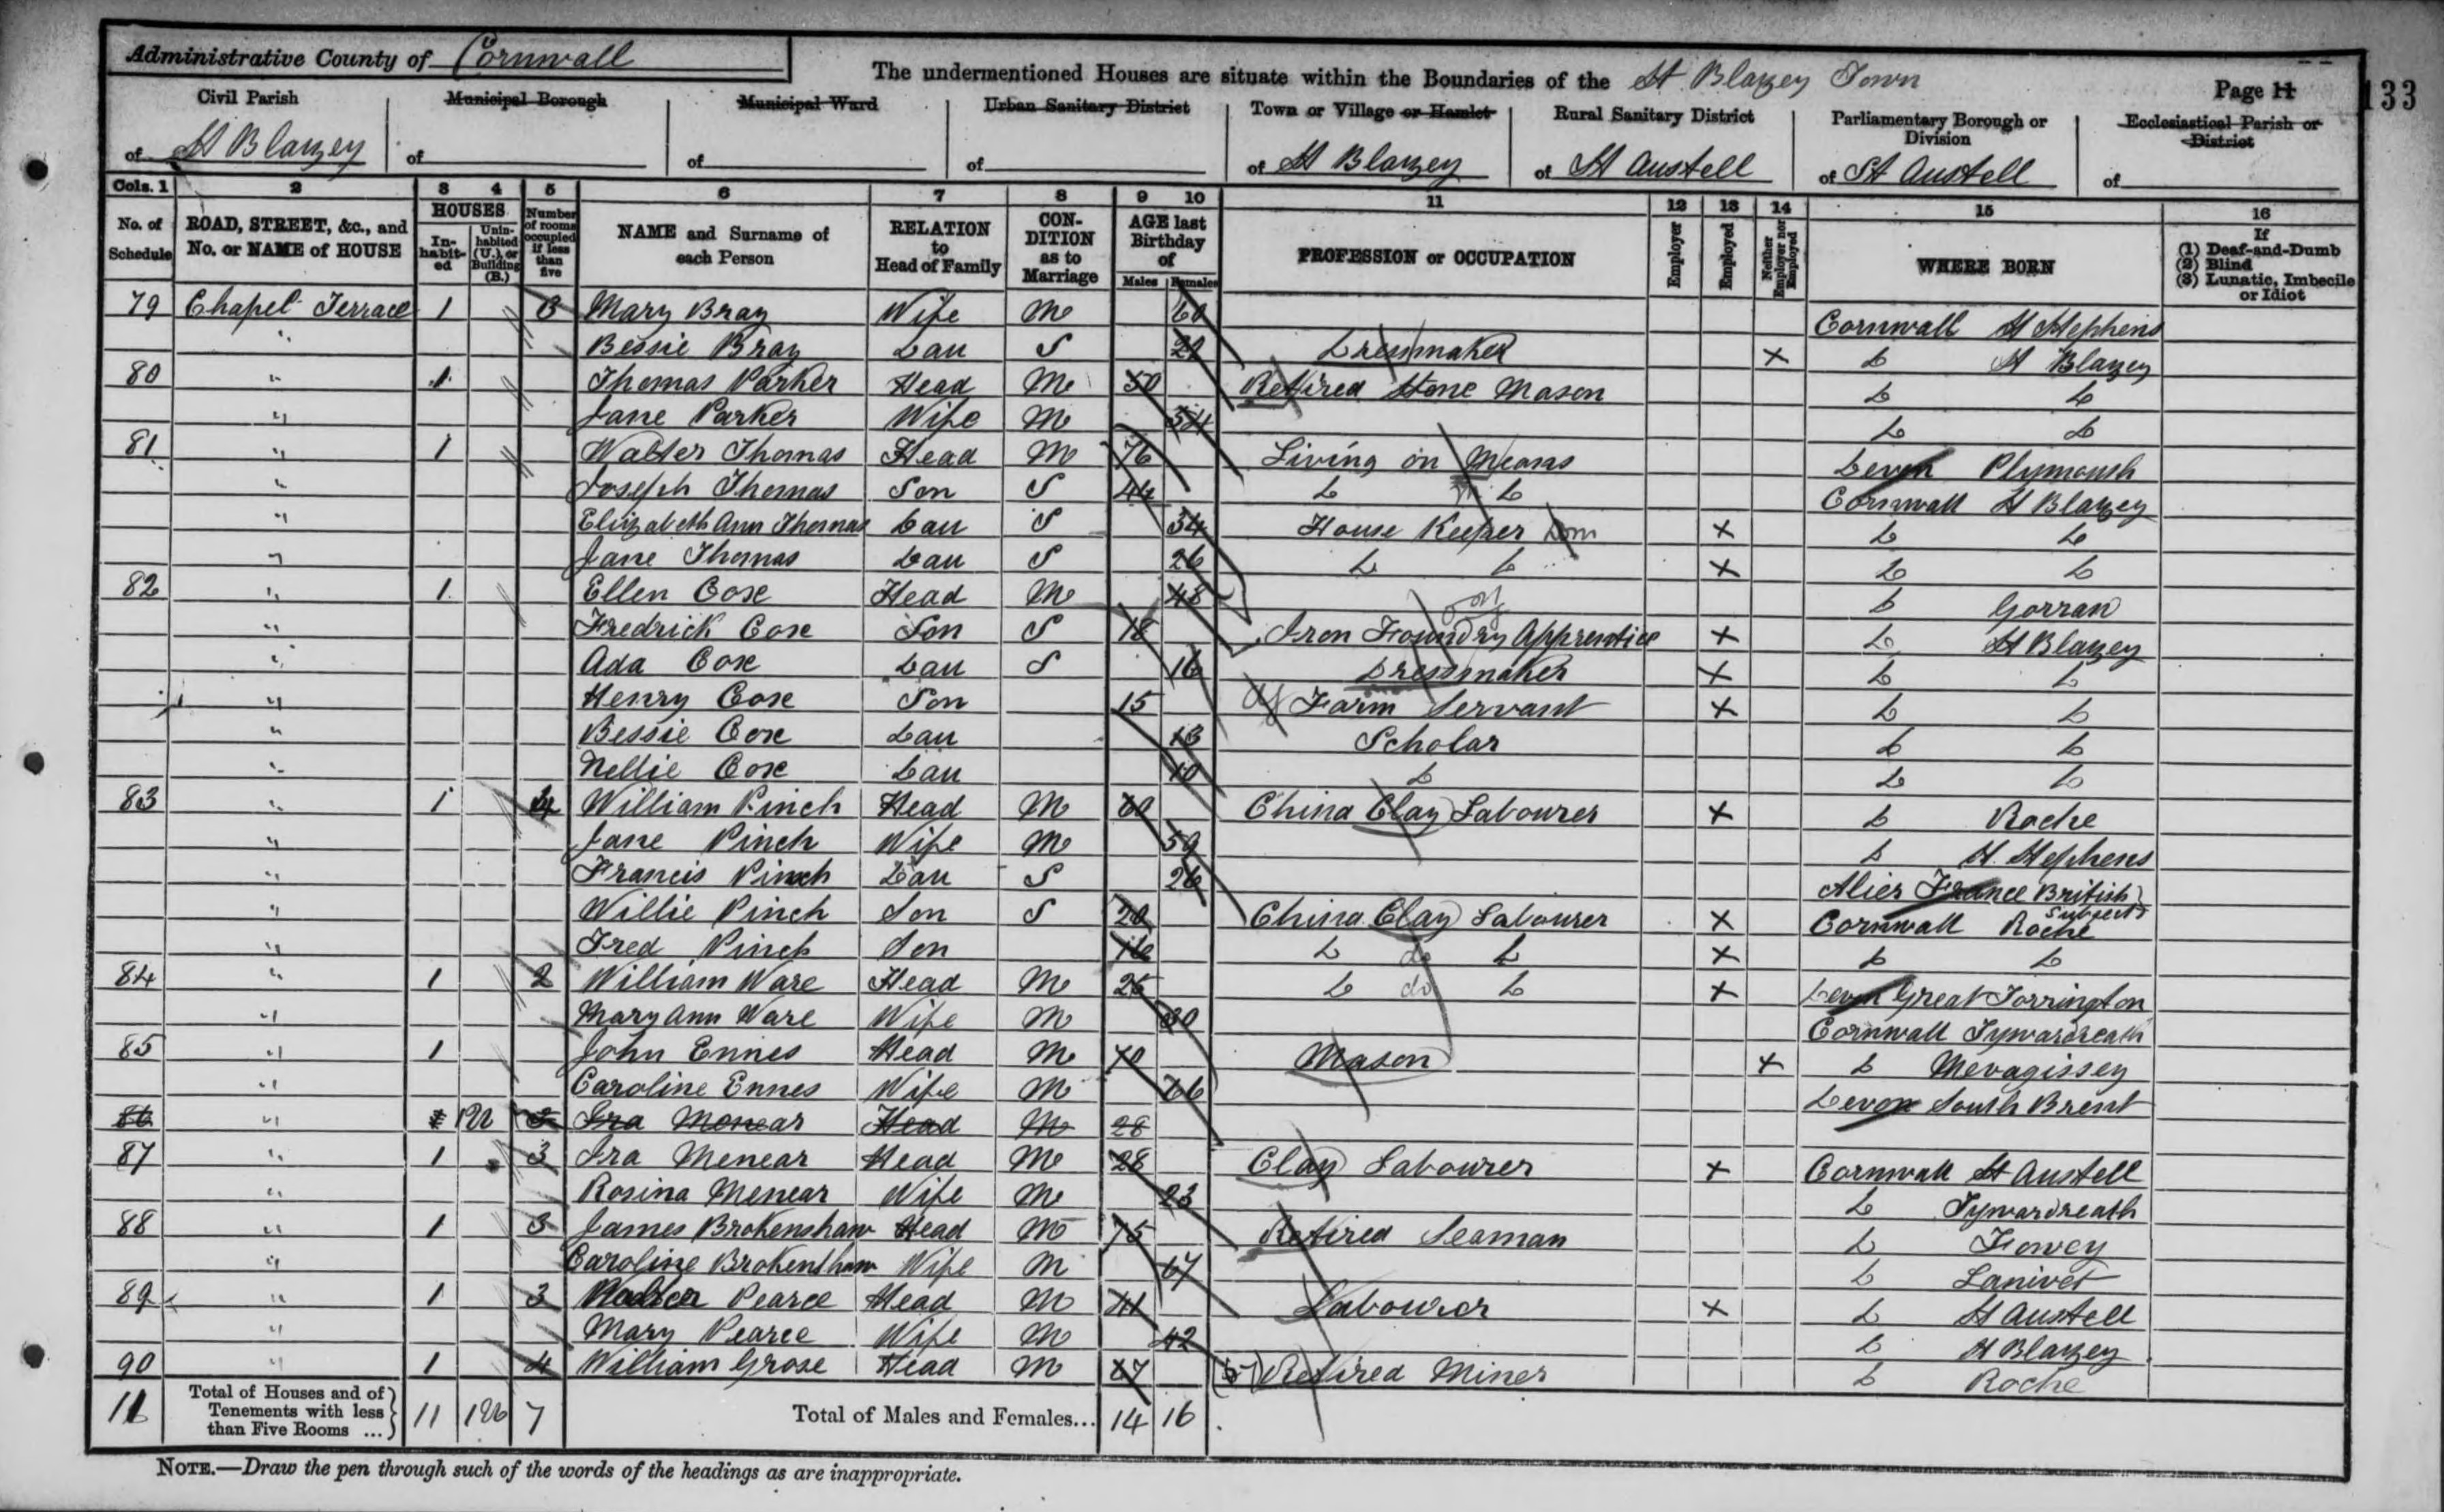 Administrative County of Cornwall
The undermentioned Houses are situate within the Boundaries of the St Blazey Town
Page 11
133
Civil Parish of St Blazey
Municipal Borough of
Municipal Ward of
Urban Sanitary District of
Town or Village or Hamlet of St Blazey
Rural Sanitary District of St Austell
Parliamentary Borough or Division of St Austell
Ecclesiastical Parish or District of
Cols. 1 2 3 4 5 6 7 8 9 10 11 12 13 14 15 16
No. of Schedule
ROAD, STREET, &c., and No. or NAME of HOUSE
HOUSES
Inhabited
Uninhabited (U.), or Building (B.)
Number of rooms occupied if less than five
NAME and Surname of each Person
RELATION to Head of Family
CONDITION as to Marriage
AGE last Birthday of
Males Females
PROFESSION or OCCUPATION
Employer
Employed
Neither Employer nor Employed
WHERE BORN
If
(1) Deaf-and-Dumb
(2) Blind
(3) Lunatic, Imbecile or Idiot
79 Chapel Terrace 1 3 Mary Bray Wife M 60 Cornwall St Stephens
" Bessie Bray Dau S Dressmaker X Do St Blazey
80 " 1 Thomas Parker Head M 50 Retired Stone Mason Do Do
" Jane Parker Wife M 54 Do Do
81 " 1 Walter Thomas Head M 76 Living on Means Devon Plymouth
" Joseph Thomas Son S 44 Do Do Cornwall St Blazey
" Elizabeth Ann Thomas Dau S 34 House Keeper Dom X Do Do
" Jane Thomas Dau S 26 Do Do X Do Do
82 " 1 Ellen Cose Head M 48 Do Gorran
" Fredrick Cose Son S 18 Iron Foundry Apprentice X Do St Blazey
" Ada Cose Dau S 16 Dressmaker X Do Do
" Henry Cose Son 15 Farm Servant X Do Do
" Bessie Cose Dau 13 Scholar Do Do
" Nellie Cose Dau 10 Do Do Do
83 " 1 4 William Pinch Head M 60 China Clay Labourer X Do Roche
" Jane Pinch Wife M 59 Do St Stephens
" Francis Pinch Dau S 26 France British Subject
" Willie Pinch Son S 20 China Clay Labourer X Cornwall Roche
" Fred Pinch Son 16 Do do Do X Do Do
84 " 1 2 William Ware Head M 25 Do do Do X Devon Great Torrington
" Mary Ann Ware Wife M 30 Cornwall Tywardreath
85 " 1 John Ennes Head M 70 Mason X Do Mevagissey
" Caroline Ennes Wife M 66 Devon South Brent
86 " Ira Menear Head M 28
87 " 1 3 Ira Menear Head M 28 Clay Labourer X Cornwall St Austell
" Rosina Menear Wife M 23 Do Tywardreath
88 " 1 3 James Brokenshaw Head M 75 Retired Seaman Do Fowey
" Caroline Brokenshaw Wife M 67 Do Lanivet
89 " 1 3 Pearce Head M 41 Labourer X Do St Austell
" Mary Pearce Wife M 42 Do St Blazey
90 " 1 4 William Grose Head M 67 Retired Miner Do Roche
11 Total of Houses and of Tenements with less than Five Rooms ... 11 7 Total of Males and Females... 14 16
NOTE.—Draw the pen through such of the words of the headings as are inappropriate.